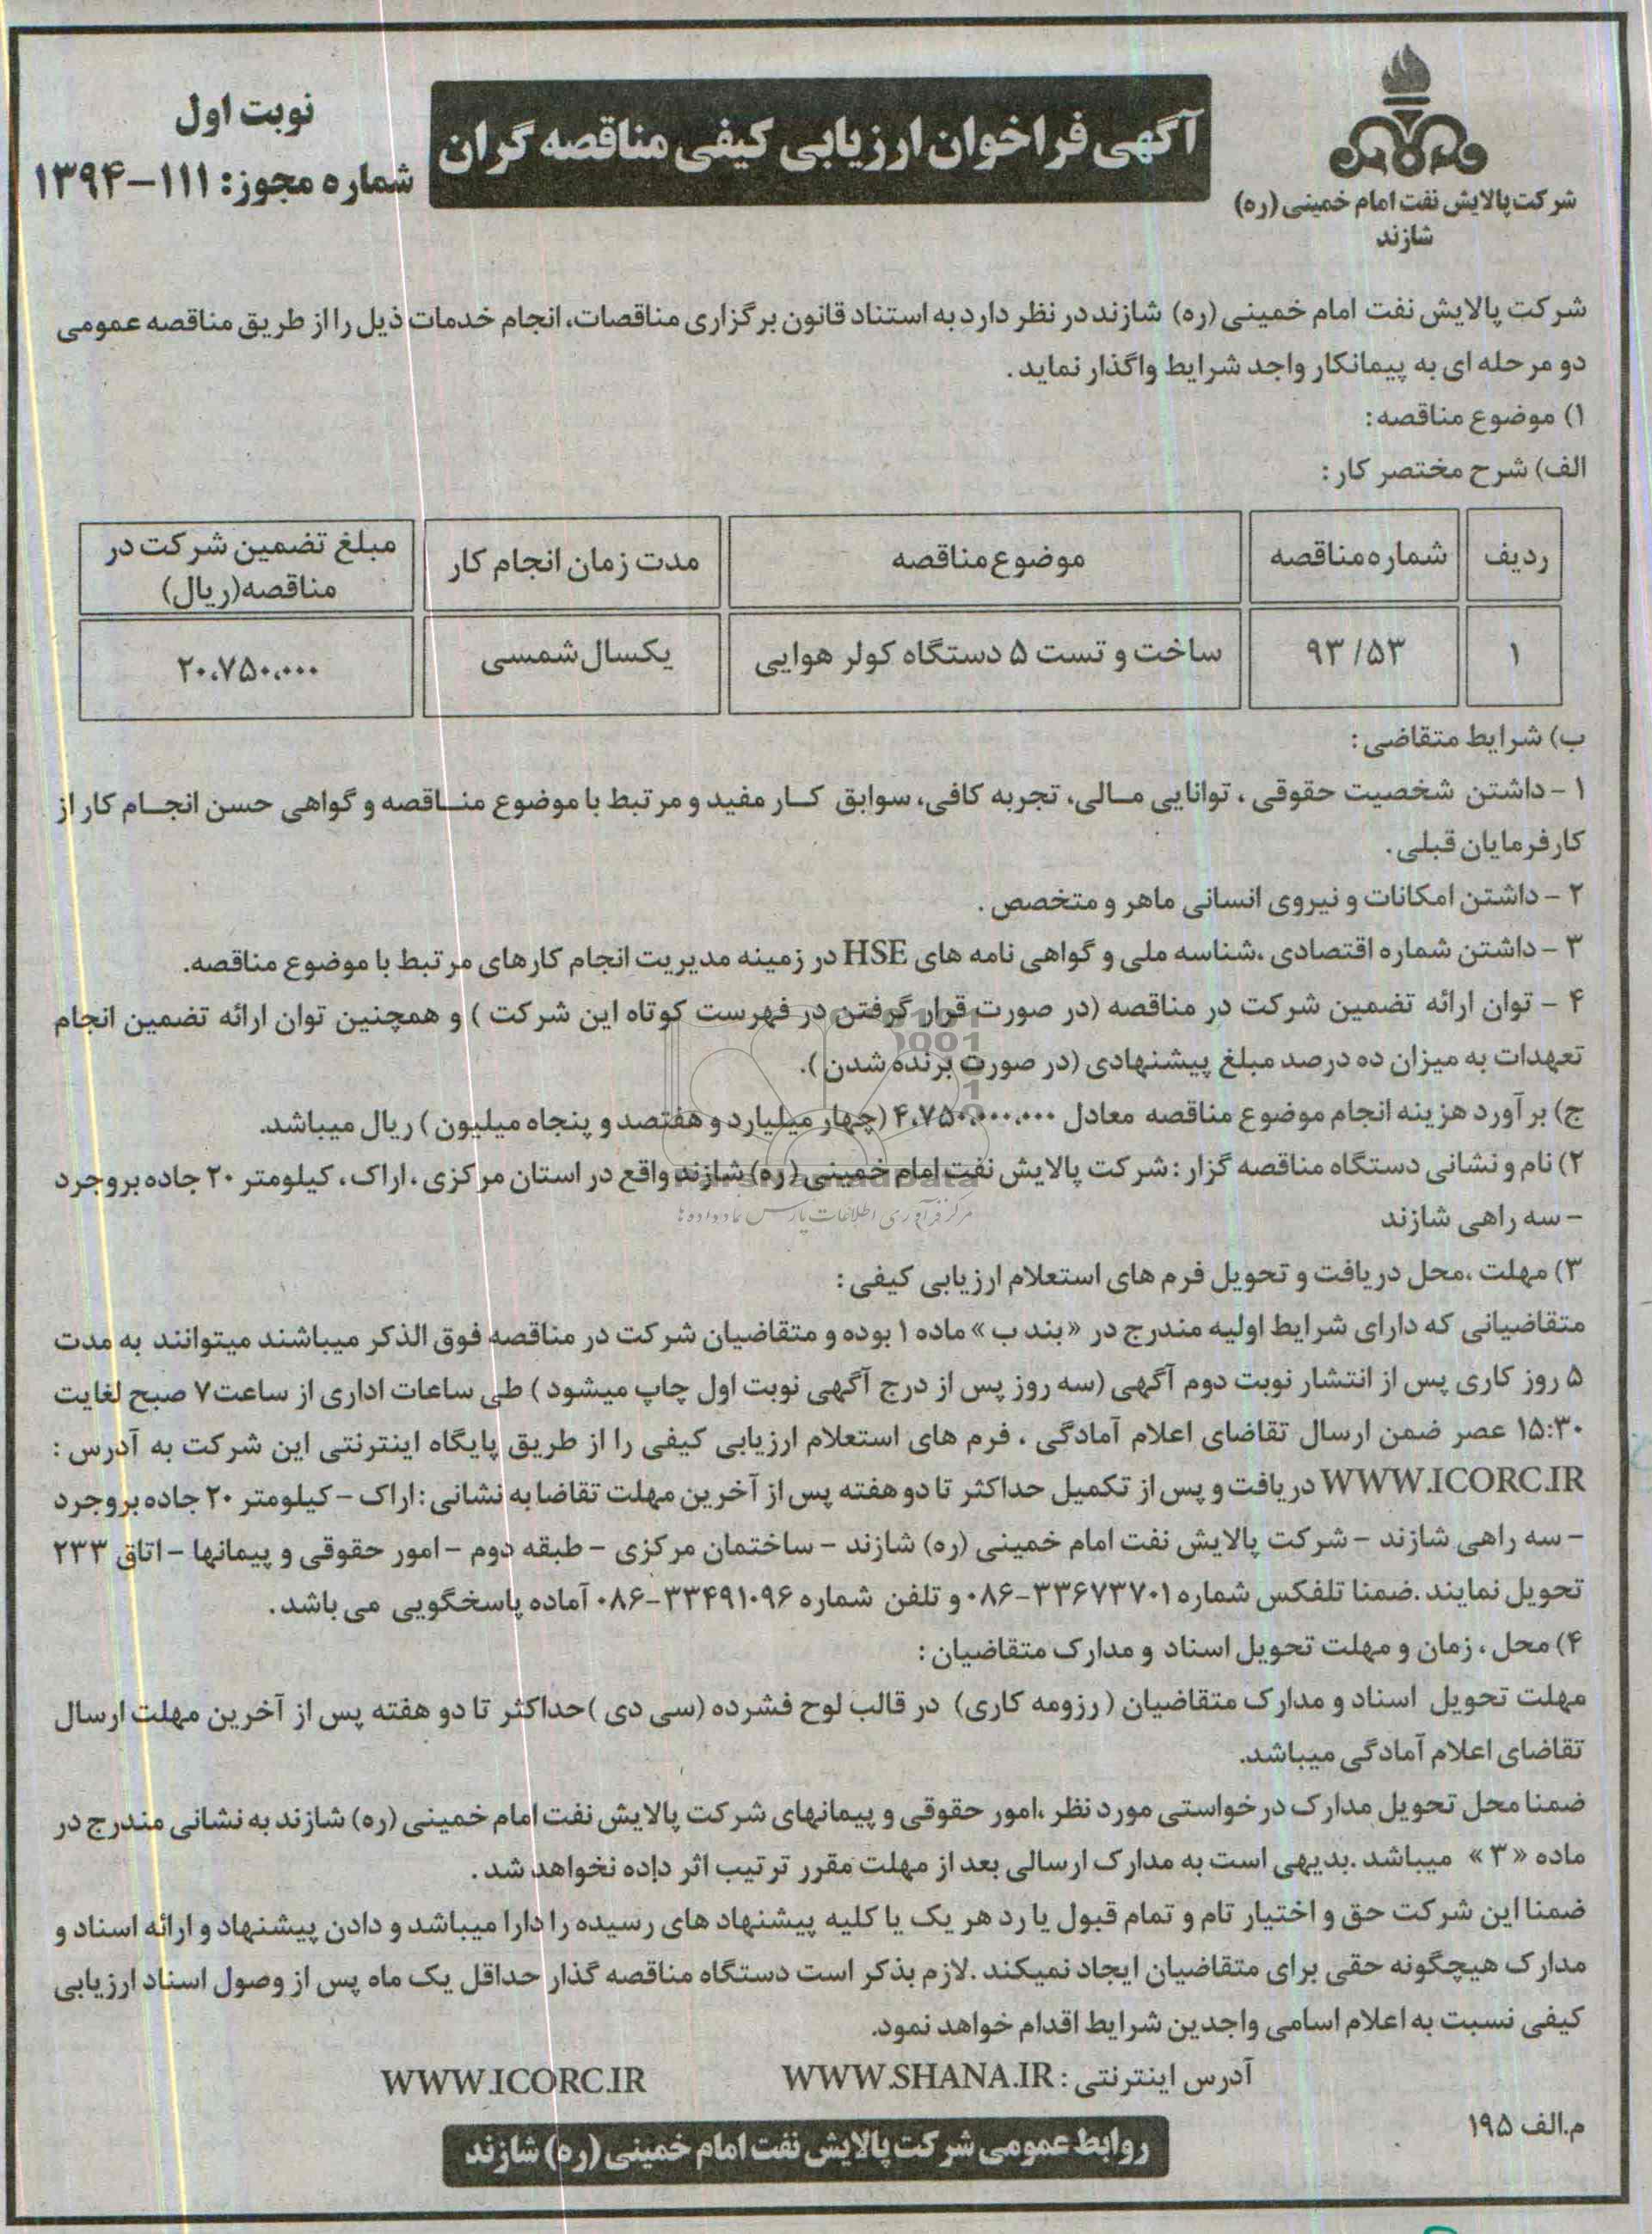 شرکت پالایش نفت امام خمینی (ره)
شازند
آگهی فراخوان ارزیابی کیفی مناقصه گران
نوبت اول
شماره مجوز: ۱۱۱-۱۳۹۴
شرکت پالایش نفت امام خمینی (ره) شازند در نظر دارد به استناد قانون برگزاری مناقصات، انجام خدمات ذیل را از طریق مناقصه عمومی
دو مرحله ای به پیمانکار واجد شرایط واگذار نماید.
۱) موضوع مناقصه:
الف) شرح مختصر کار:
ردیف | شماره مناقصه | موضوع مناقصه | مدت زمان انجام کار | مبلغ تضمین شرکت در مناقصه(ریال)
۱ | ۹۳/۵۳ | ساخت و تست ۵ دستگاه کولر هوایی | یکسال شمسی | ۲۰،۷۵۰،۰۰۰
ب) شرایط متقاضی:
۱ - داشتن شخصیت حقوقی ، توانایی مـالی، تجربه کافی، سوابق کـار مفید و مرتبط با موضوع منـاقصه و گواهی حسن انجـام کار از
کارفرمایان قبلی.
۲ - داشتن امکانات و نیروی انسانی ماهر و متخصص .
۳ - داشتن شماره اقتصادی ،شناسه ملی و گواهی نامه های HSE در زمینه مدیریت انجام کارهای مرتبط با موضوع مناقصه.
۴ - توان ارائه تضمین شرکت در مناقصه (در صورت قرار گرفتن در فهرست کوتاه این شرکت ) و همچنین توان ارائه تضمین انجام
تعهدات به میزان ده درصد مبلغ پیشنهادی (در صورت برنده شدن ).
ج) برآورد هزینه انجام موضوع مناقصه معادل ۴،۷۵۰،۰۰۰،۰۰۰ (چهار میلیارد و هفتصد و پنجاه میلیون ) ریال میباشد.
۲) نام و نشانی دستگاه مناقصه گزار : شرکت پالایش نفت امام خمینی (ره) شازند واقع در استان مرکزی ، اراک ، کیلومتر ۲۰ جاده بروجرد
مرکز فرآوری اطلاعات پارس نماد داده ها
- سه راهی شازند
۳) مهلت ،محل دریافت و تحویل فرم های استعلام ارزیابی کیفی :
متقاضیانی که دارای شرایط اولیه مندرج در «بند ب» ماده ۱ بوده و متقاضیان شرکت در مناقصه فوق الذکر میباشند میتوانند به مدت
۵ روز کاری پس از انتشار نوبت دوم آگهی (سه روز پس از درج آگهی نوبت اول چاپ میشود ) طی ساعات اداری از ساعت ۷ صبح لغایت
۱۵:۳۰ عصر ضمن ارسال تقاضای اعلام آمادگی ، فرم های استعلام ارزیابی کیفی را از طریق پایگاه اینترنتی این شرکت به آدرس :
WWW.ICORC.IR دریافت و پس از تکمیل حداکثر تا دو هفته پس از آخرین مهلت تقاضا به نشانی : اراک - کیلومتر ۲۰ جاده بروجرد
- سه راهی شازند - شرکت پالایش نفت امام خمینی (ره) شازند - ساختمان مرکزی - طبقه دوم - امور حقوقی و پیمانها - اتاق ۲۳۳
تحویل نمایند .ضمنا تلفکس شماره ۳۳۶۷۳۷۰۱-۰۸۶ و تلفن شماره ۳۳۴۹۱۰۹۶-۰۸۶ آماده پاسخگویی می باشد .
۴) محل ، زمان و مهلت تحویل اسناد و مدارک متقاضیان :
مهلت تحویل اسناد و مدارک متقاضیان ( رزومه کاری) در قالب لوح فشرده (سی دی )حداکثر تا دو هفته پس از آخرین مهلت ارسال
تقاضای اعلام آمادگی میباشد.
ضمنا محل تحویل مدارک درخواستی مورد نظر ،امور حقوقی و پیمانهای شرکت پالایش نفت امام خمینی (ره) شازند به نشانی مندرج در
ماده « ۳ » میباشد .بدیهی است به مدارک ارسالی بعد از مهلت مقرر ترتیب اثر داده نخواهد شد .
ضمنا این شرکت حق و اختیار تام و تمام قبول یا رد هر یک یا کلیه پیشنهاد های رسیده را دارا میباشد و دادن پیشنهاد و ارائه اسناد و
مدارک هیچگونه حقی برای متقاضیان ایجاد نمیکند .لازم بذکر است دستگاه مناقصه گذار حداقل یک ماه پس از وصول اسناد ارزیابی
کیفی نسبت به اعلام اسامی واجدین شرایط اقدام خواهد نمود.
آدرس اینترنتی : WWW.SHANA.IR WWW.ICORC.IR
م.الف ۱۹۵
روابط عمومی شرکت پالایش نفت امام خمینی (ره) شازند